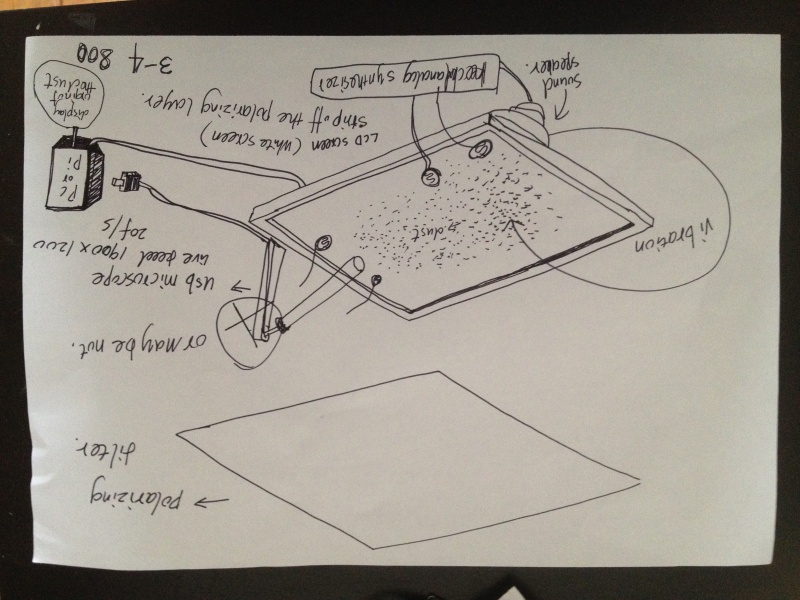 polarizing
filter.
or maybe not.
usb microscope
live feed 1900 x 1200
20 f/s
vibration
dust
PC
or
Pi
display
the dust
LCD screen (white screen)
strip off the polarizing layer.
analog synthesizer
sound
speaker.
3-4 800